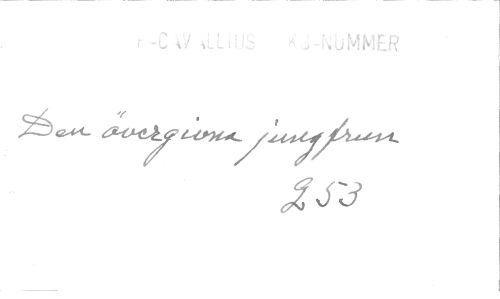 H-CAVALLIUS KB-NUMMER
Den övergivna jungfrun
253